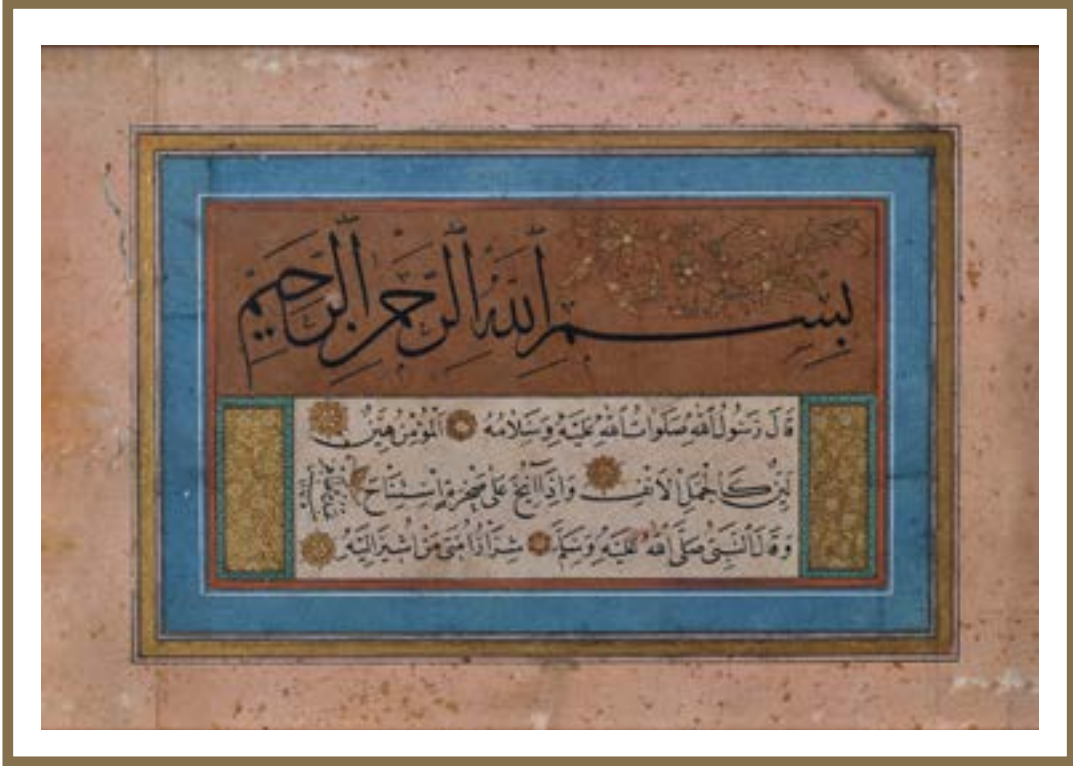 بسم الله الرحمن الرحيم
قال رسول الله صلوات الله عليه وسلامه المؤمن هين
لين كالجمل الانف واذا انيخ على صخرة استناخ
وقال النبي صلى الله عليه وسلم شرار امتي من اشير اليه